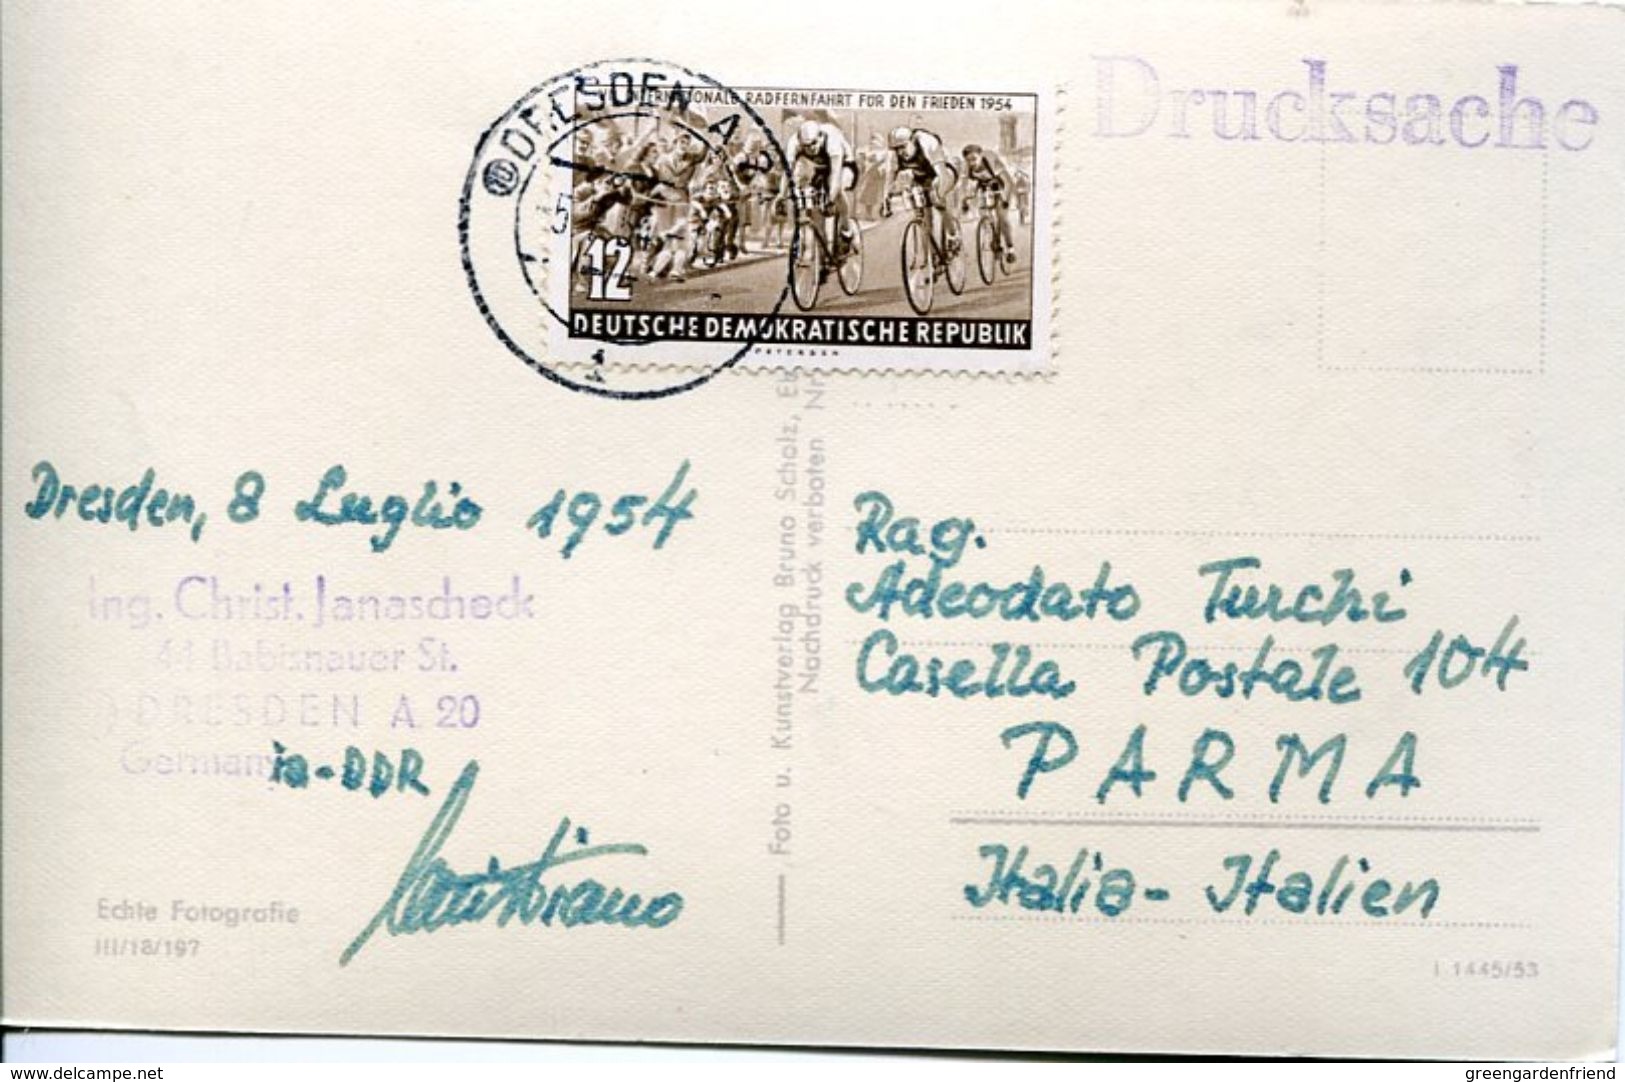 Drucksache
DRESDEN A
INTERNATIONALE RADFERNFAHRT FÜR DEN FRIEDEN 1954
12
DEUTSCHE DEMOKRATISCHE REPUBLIK
Dresden, 8 Luglio 1954
Ing. Christ. Janascheck
44 Babisnauer St.
DRESDEN A. 20
Germany
ia-DDR
Cristiano
Echte Fotografie
III/18/197
Foto u. Kunstverlag Bruno Scholz,
Nachdruck verboten Nr
Rag.
Adeodato Turchi
Casella Postale 104
PARMA
Italia-Italien
I 1445/53
delcampe.net
greengardenfriend